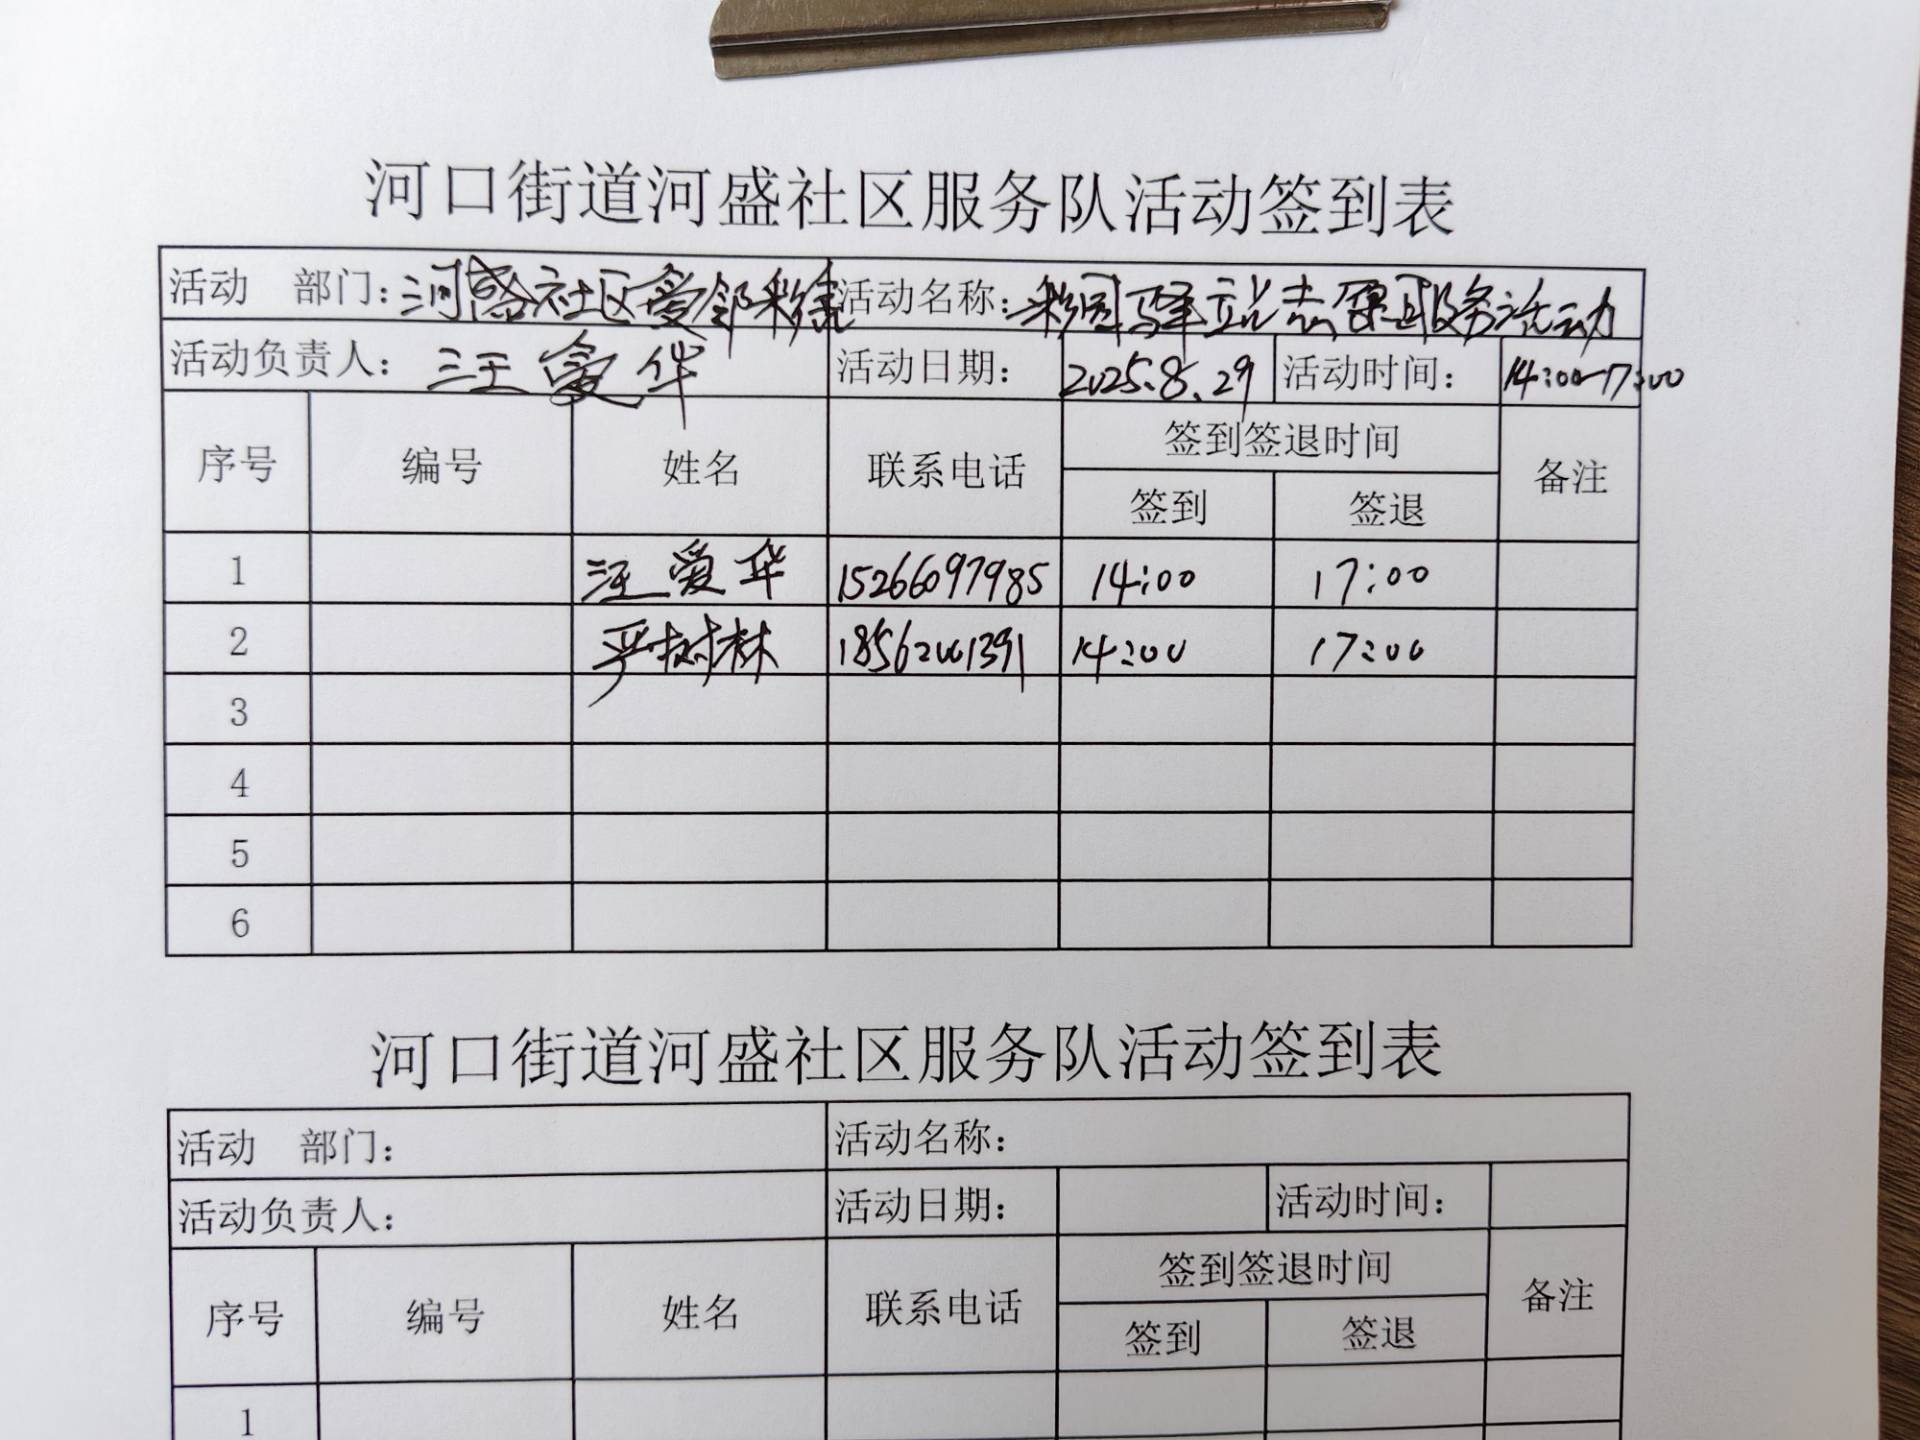 河口街道河盛社区服务队活动签到表
活动 部门：河盛社区爱邻彩 活动名称：彩园驿站志愿服务活动
活动负责人：汪爱华 活动日期：2025.8.29 活动时间：14:00-17:00
序号 编号 姓名 联系电话 签到签退时间 备注
签到 签退
1 汪爱华 15266097985 14:00 17:00
2 严树林 18562001391 14:00 17:00
3
4
5
6
河口街道河盛社区服务队活动签到表
活动 部门： 活动名称：
活动负责人： 活动日期： 活动时间：
序号 编号 姓名 联系电话 签到签退时间 备注
签到 签退
1